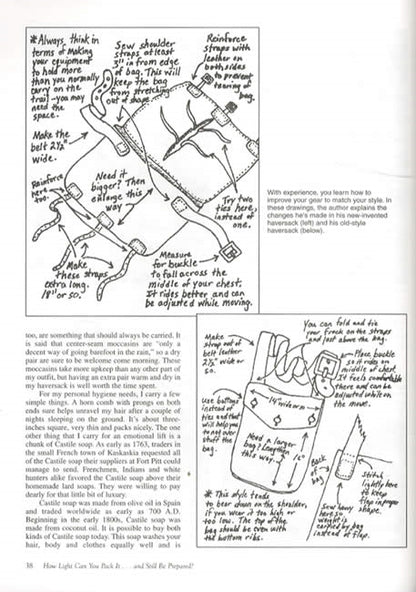 *Always, think in
terms of Making
your equipment
to hold more
than you normally
carry on the
trail - you may
need the
space.
Sew shoulder
straps at least
3" in from edge
of bag. This will
keep the bag
from stretching
out of shape.
Reinforce
straps with
leather on
both sides
to prevent
tearing of
bag.
Make the
belt 2½"
wide.
Reinforce
here
too.
Need it
bigger? Then
enlarge this
way
Try two
ties here,
instead of
one.
Make
these straps
extra long.
18" or so.
Measure
for buckle
to fall across the
middle of your chest.
It rides better and can
be adjusted while moving.
With experience, you learn how to
improve your gear to match your style. In
these drawings, the author explains the
changes he's made in his new-invented
haversack (left) and his old-style
haversack (below).
too, are something that should always be carried. It
is said that center-seam moccasins are "only a
decent way of going barefoot in the rain," so a dry
pair are sure to be welcome come morning. These
moccasins take more upkeep than any other part of
my outfit, but having an extra pair warm and dry in
my haversack is well worth the time spent.
For my personal hygiene needs, I carry a few
simple things. A horn comb with prongs on both
ends sure helps unravel my hair after a couple of
nights sleeping on the ground. It's about three-
inches square, very thin and packs nicely. The one
other thing that I carry for an emotional lift is a
chunk of Castile soap. As early as 1763, traders in
the small French town of Kaskaskia requested all
of the Castile soap their suppliers at Fort Pitt could
manage to send. Frenchmen, Indians and white
hunters alike favored the Castile soap above their
homemade lard soaps. They were willing to pay
dearly for that little bit of luxury.
Castile soap was made from olive oil in Spain
and traded worldwide as early as 700 A.D.
Beginning in the early 1800s, Castile soap was
made from coconut oil. It is possible to buy both
kinds of Castile soap today. This soap washes your
hair, body and clothes equally well and is
You can fold and tie
your frock on the straps
and just above the bag.
Make
strap out of
belt leather
2½" wide or
so.
Place buckle
so it rides on
middle of chest.
It feels comfortable
there and can be
adjusted while on
the move.
Use buttons
instead of
ties and that
will help you
to not over
stuff the
bag.
14" wide or m
Need a larger
bag? Lengthen
this way.
16"
Back of
bag
Stitch
lightly here
to keep
flap in proper
shape.
Sew heavy
here so
weight is
carried by bag
instead of flap.
* This style tends
to bear down on the shoulder,
if you wear it too high or
too low. The top of the
bag should be even with
the bottom ribs.
38 How Light Can You Pack It . . . and Still Be Prepared?